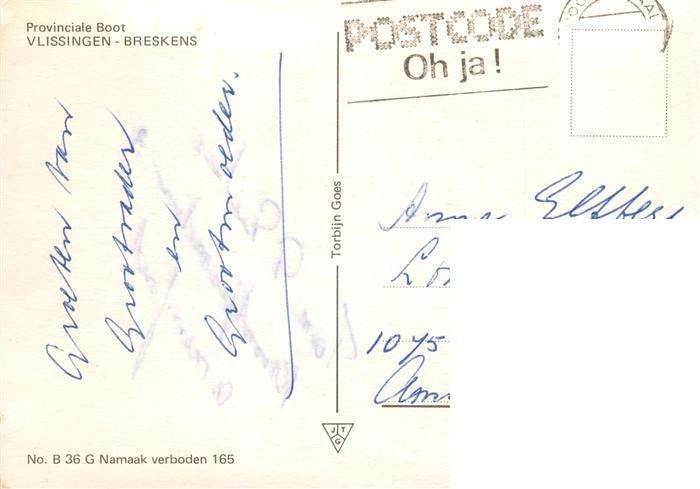 Provinciale Boot
VLISSINGEN - BRESKENS
POSTCODE
Oh ja!
Groeten van
Grootvader
en
Grootmoeder.
Torbijn Goes
Anna
1045
J T
G
No. B 36 G Namaak verboden 165